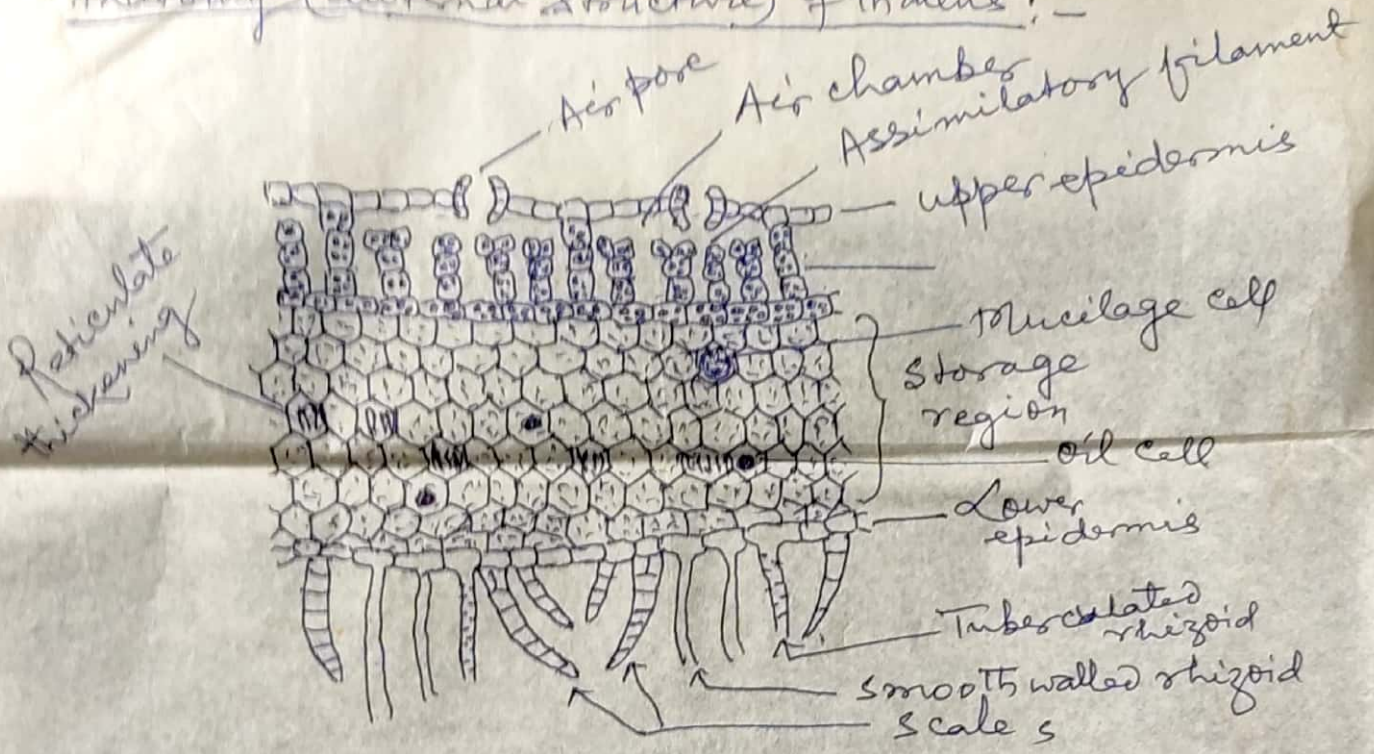 Anatomy (Internal Structure) of Thallus :-
Air pore
Air chamber
Assimilatory filament
upper epidermis
Reticulate
thickening
Mucilage cell
storage
region
oil cell
Lower
epidermis
Tuberculated
rhizoid
smooth walled rhizoid
scales